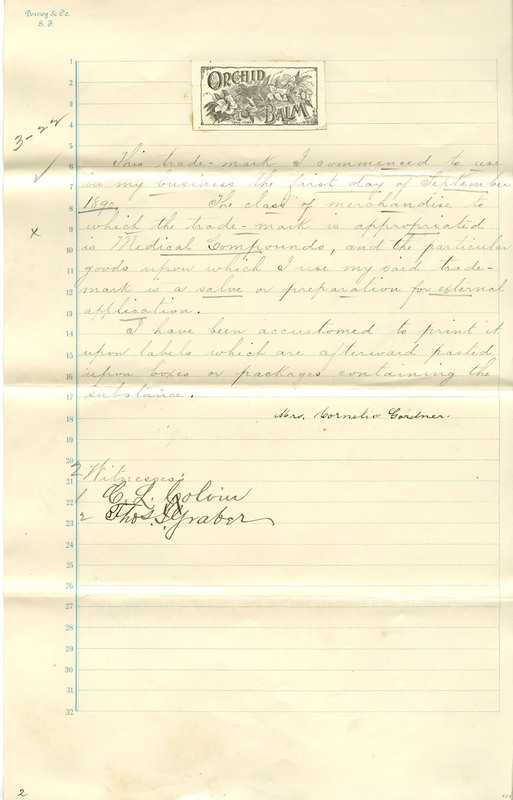 Dewey & Co.
S. F.
ORCHID
BALM
3-22
This trade-mark I commenced to use
in my business the first day of September
The class of merchandise to
which the trade-mark is appropriated
is Medical Compounds, and the particular
goods upon which I use my said trade-
mark is a salve or preparation for external
application.
I have been accustomed to print it
upon labels which are afterward pasted
upon boxes or packages containing the
substance.
Mrs. Cornelia Gardner.
2 Witnesses:
1 C. L. Colvin
2 Thos. Graber
1
2
3
4
5
6
7
8
9
10
11
12
13
14
15
16
17
18
19
20
21
22
23
24
25
26
27
28
29
30
31
32
2